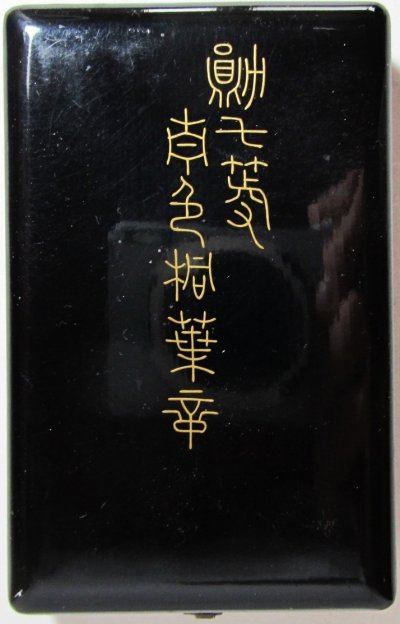 勛七等
青色桐葉章